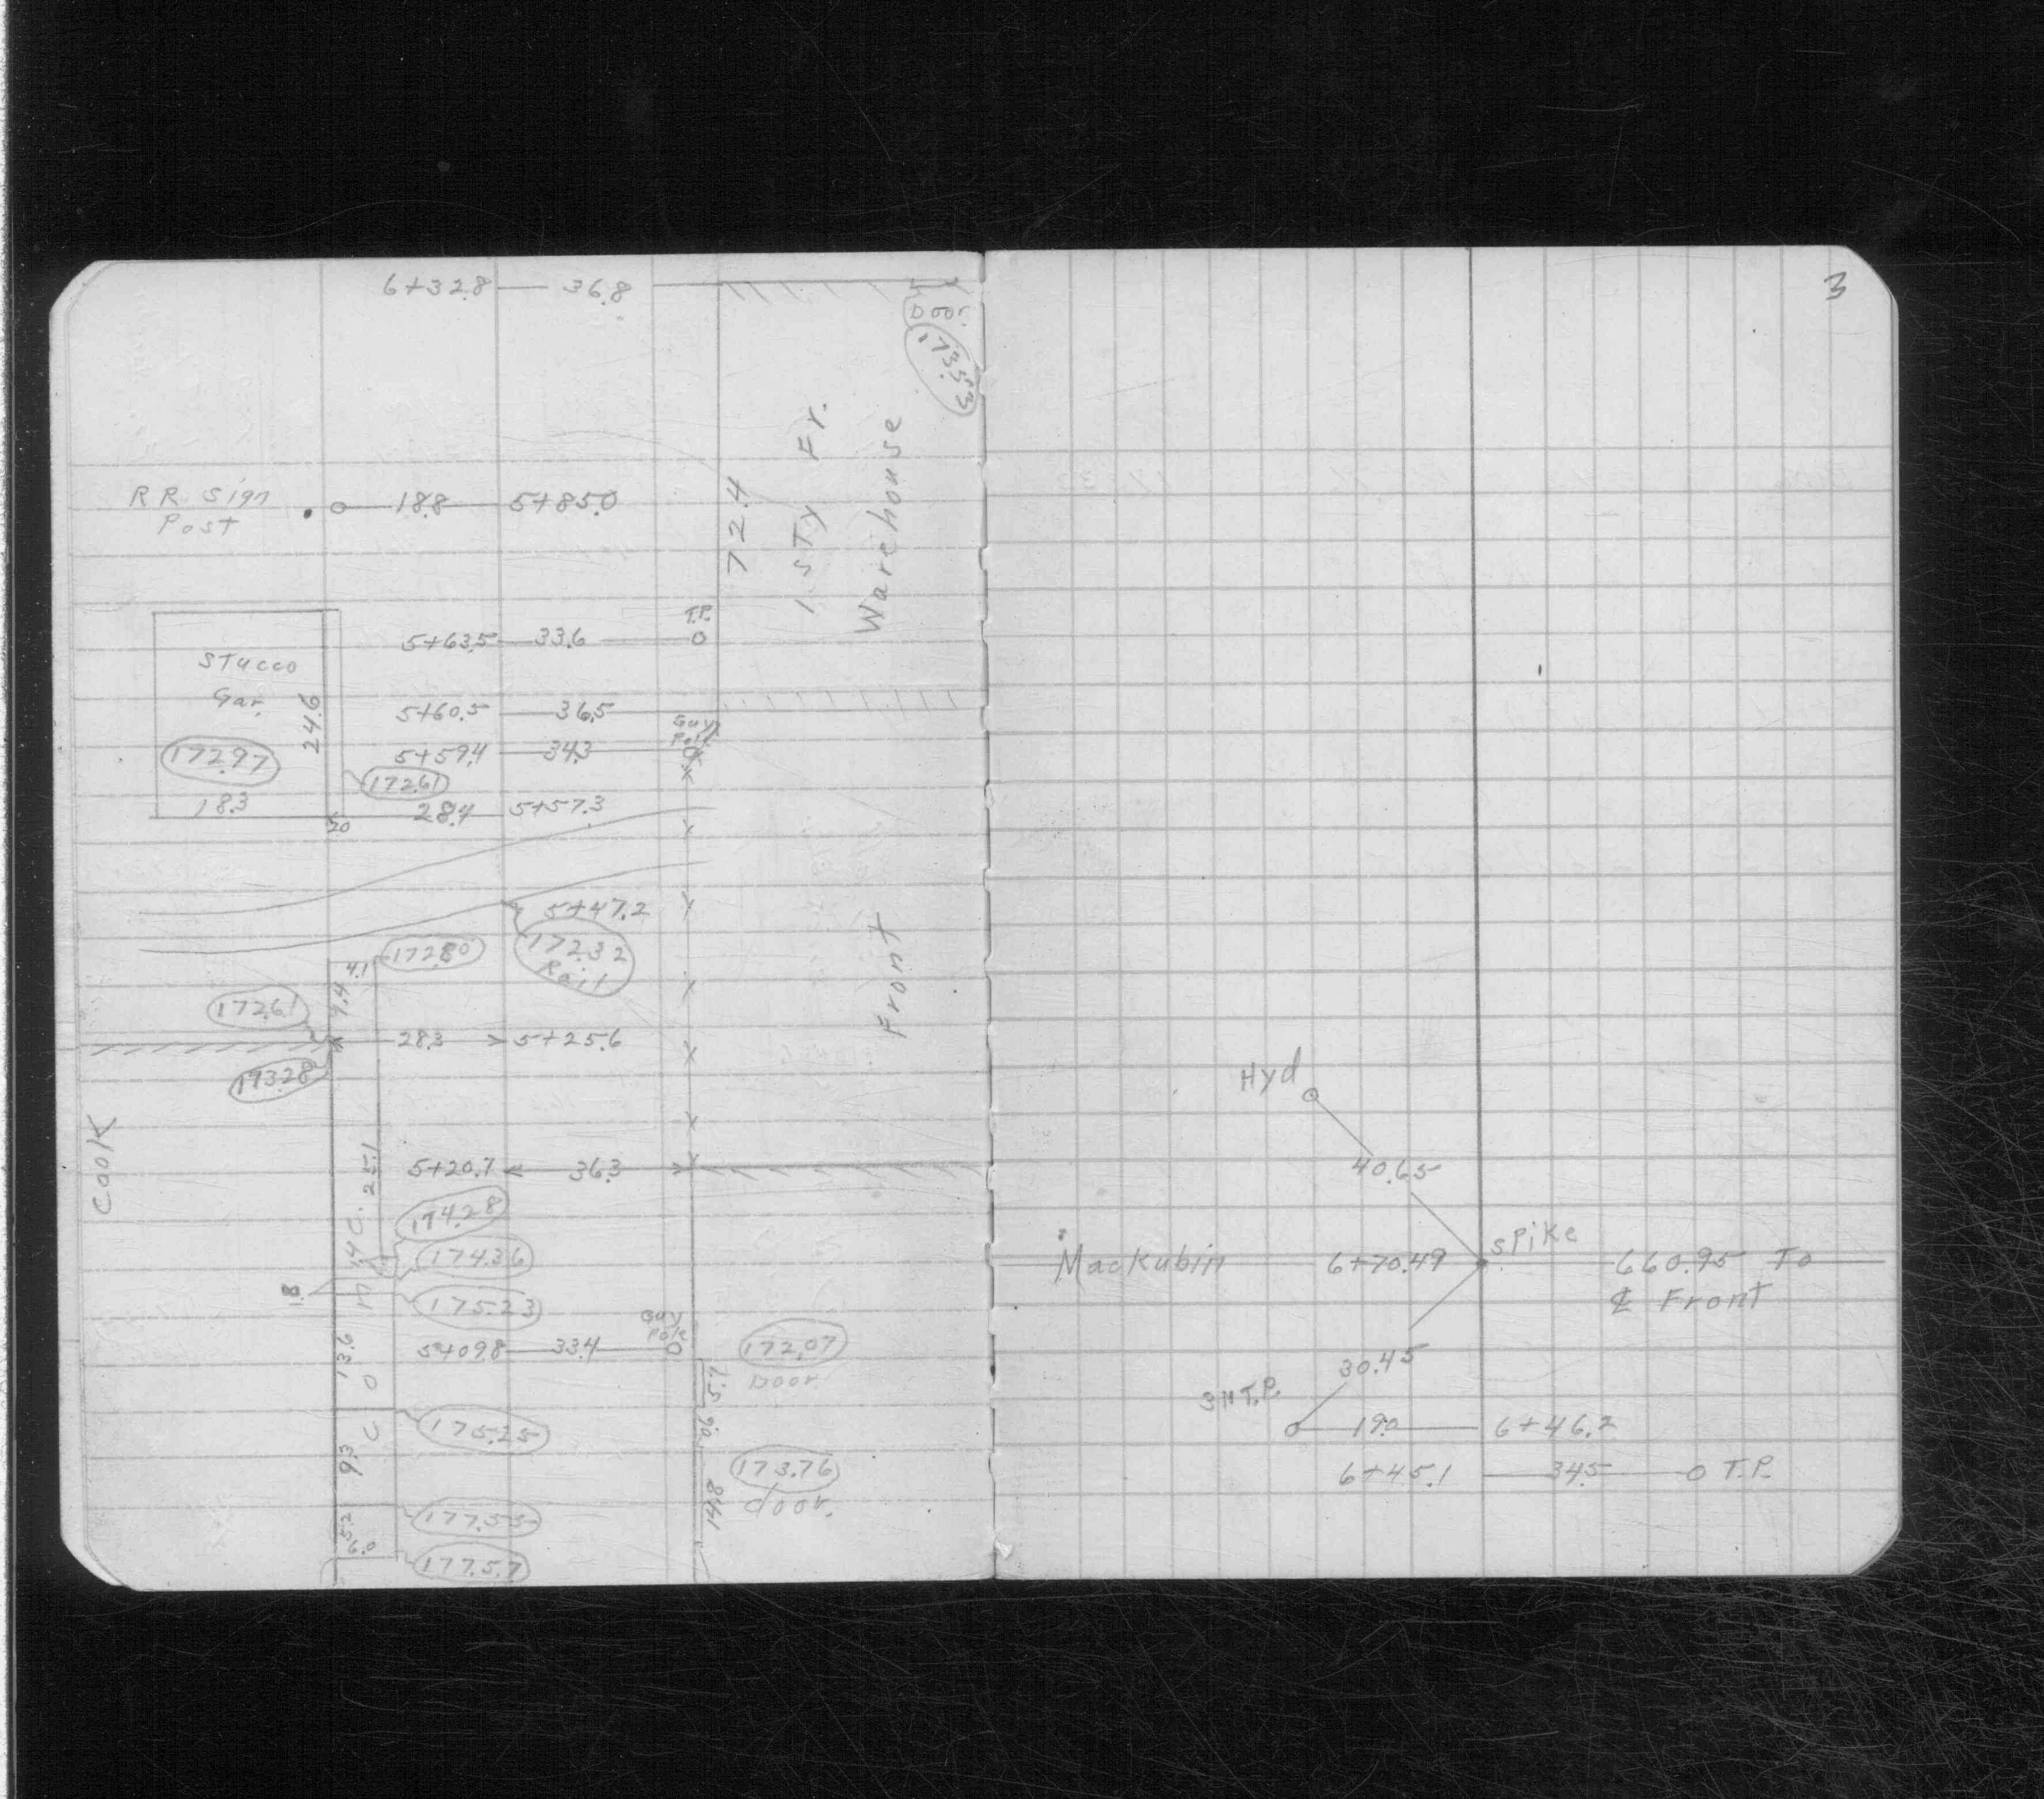 6+32.8 36.8
Door
173.53
RR Sign
Post
18.8 5+85.0
72.4
1 STy Fr.
Warehouse
T.P.
5+63.5 33.6
Stucco
Gar.
24.6
172.97
18.3
5+60.5 36.5
Guy
Pole
5+59.4 34.3
172.61
20
28.4 5+57.3
5+47.2
172.32
Rail
172.80
4.1
9.4
172.61
28.3 5+25.6
173.28
Front
Cook
25.1
5+20.7 36.3
174.28
174.36
175.23
1.8
Guy
Pole
5+09.8 33.4
172.07
Door
13.6
5.7
9.3
175.25
173.76
door.
14.8
5.2
177.55
6.0
177.57
3
Hyd
40.65
Mackubin 6+70.49 Spike 660.95 To
℄ Front
30.45
T.P.
19.0 6+46.2
6+45.1 34.5 T.P.